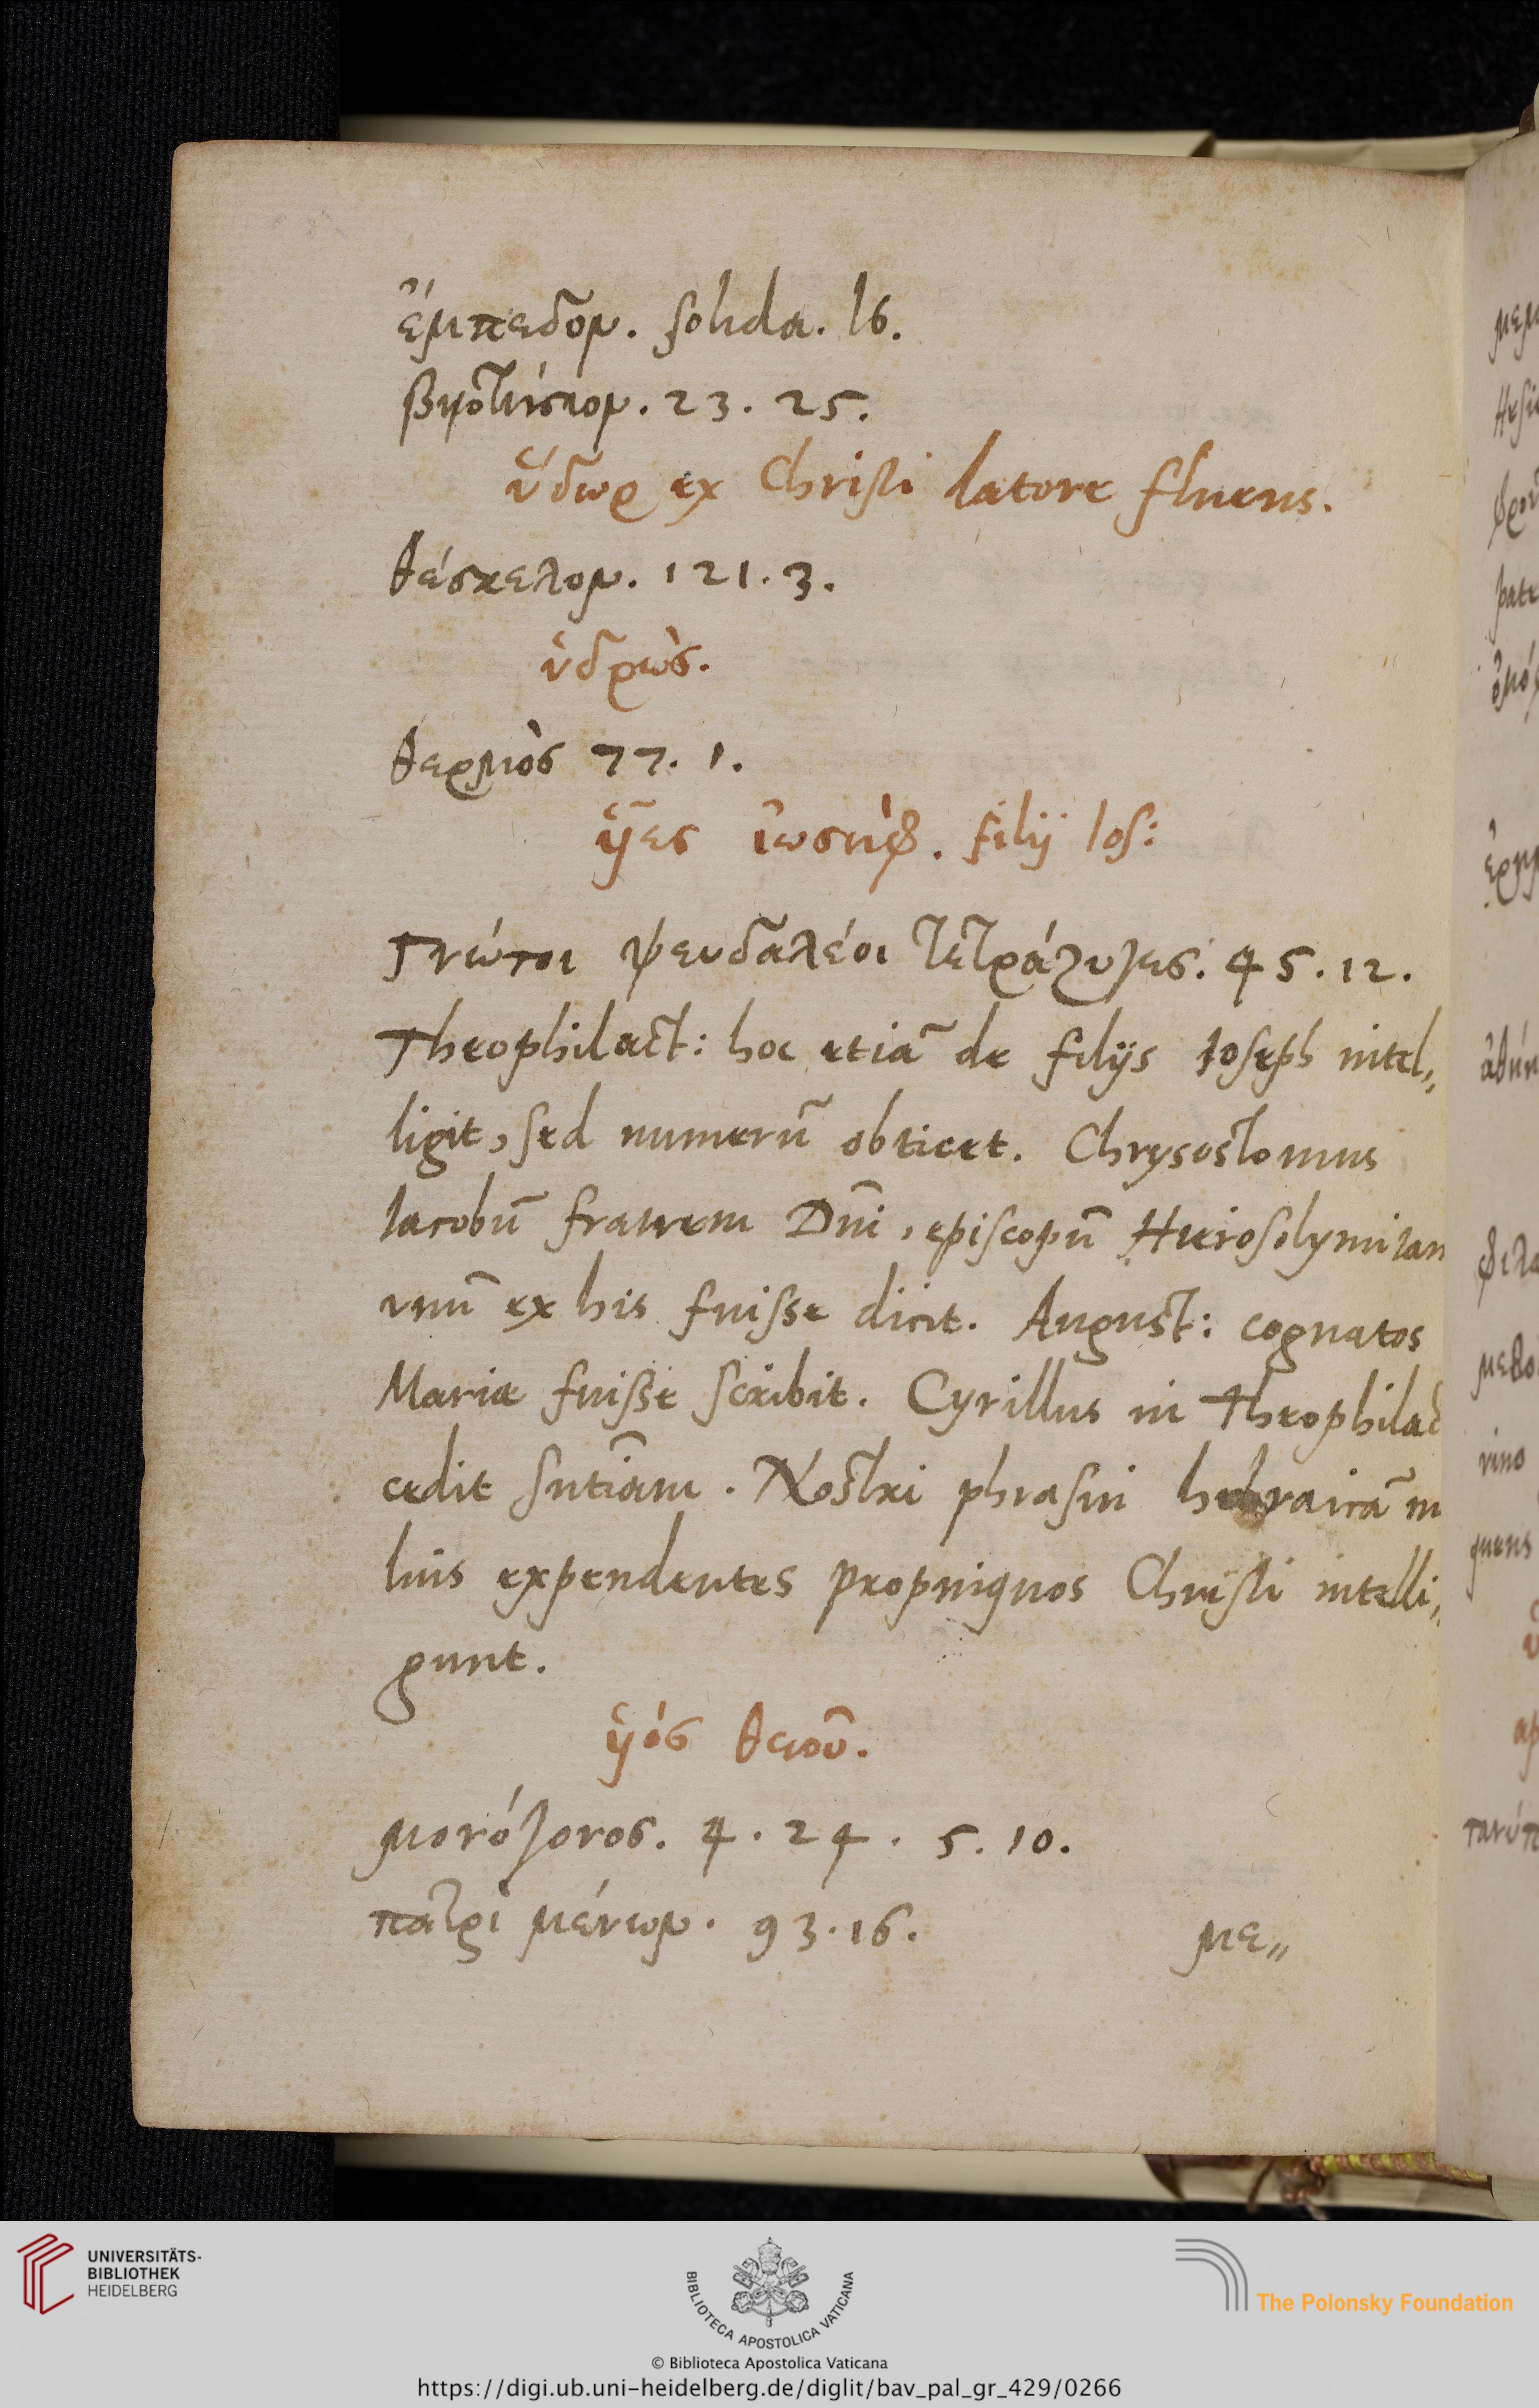 ἔμπεδον. solida. 16.
βιοτήσιον. 23. 25.
ὕδωρ ex Christi latere fluens.
θέσκελον. 121. 3.
ὑδρὼς.
θερμὸς 77. 1.
ὑῆες ἰωσὴφ. filij Ios:
γνώτοι ψευδαλέοι τετράζυγες. 45. 12.
Theophilact: hoc etiã de filijs Ioseph intel„
ligit, sed numerũ obticet. Chrysostomus
Iacobũ fratrem Dñi, episcopũ Hierosolymitan
vnũ ex his fuisse dicit. August: cognatos
Mariæ fuisse scribit. Cyrillus in Theophilac
cedit sñtiam. Nostri phrasin hebraicã m
lius expendentes propinquos Christi intelli„
gunt.
ὑιός θεοῦ.
μονόγονος. 4. 24. 5. 10.
πατρὶ μένων. 93. 16.
με„
UNIVERSITÄTS-
BIBLIOTHEK
HEIDELBERG
BIBLIOTECA APOSTOLICA VATICANA
The Polonsky Foundation
© Biblioteca Apostolica Vaticana
https://digi.ub.uni-heidelberg.de/diglit/bav_pal_gr_429/0266